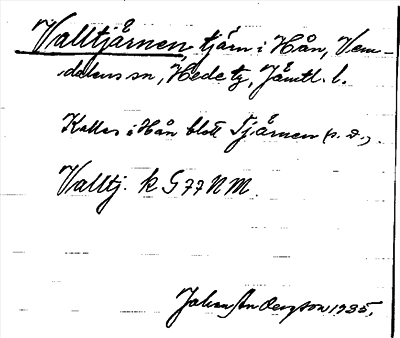 Valltjärnen, tjärn i Hån, Vem-
dalens sn, Hede tg, Jämtl. l.
Kallas i Hån blott Tjärnen (s. d.).
Valltj. k G77NM.
Johan Anderzson 1935.